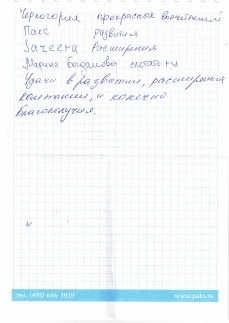 Черногория прекрасных впечатлений
Пакс развития
Расширения
Марина Богдановы
Удачи в развитии, расширения
компании, и конечно
Благополучия.
тел. (495) 646 3939 www.paks.ru